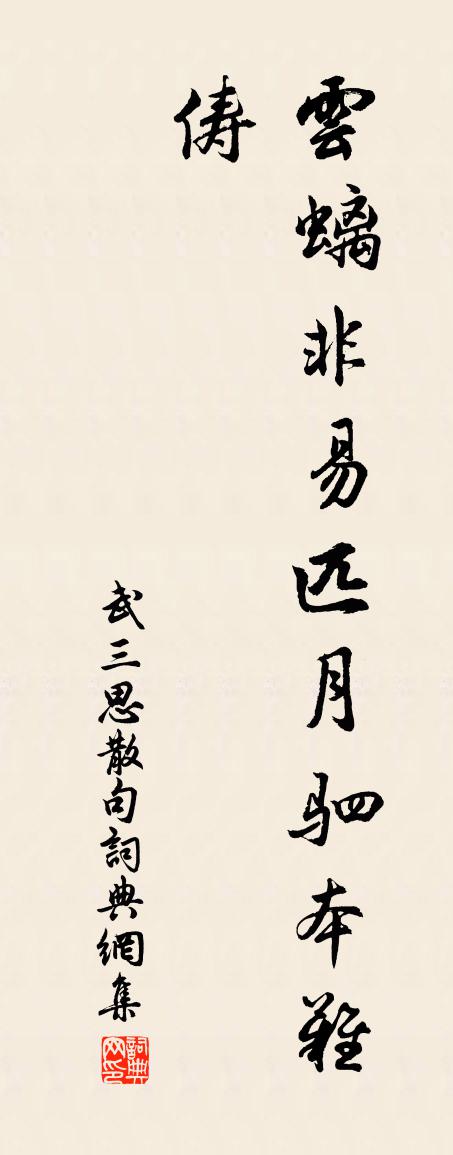 雲螭非易匹月驷本難
俦
武三思散句詞典網集
詞典
网印